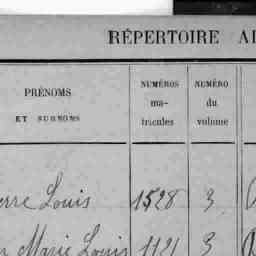 RÉPERTOIRE
PRÉNOMS
ET SURNOMS
NUMÉROS
ma-
tricules
NUMÉRO
du
volume
Louis 1528 3
Marie Louis 1121 3